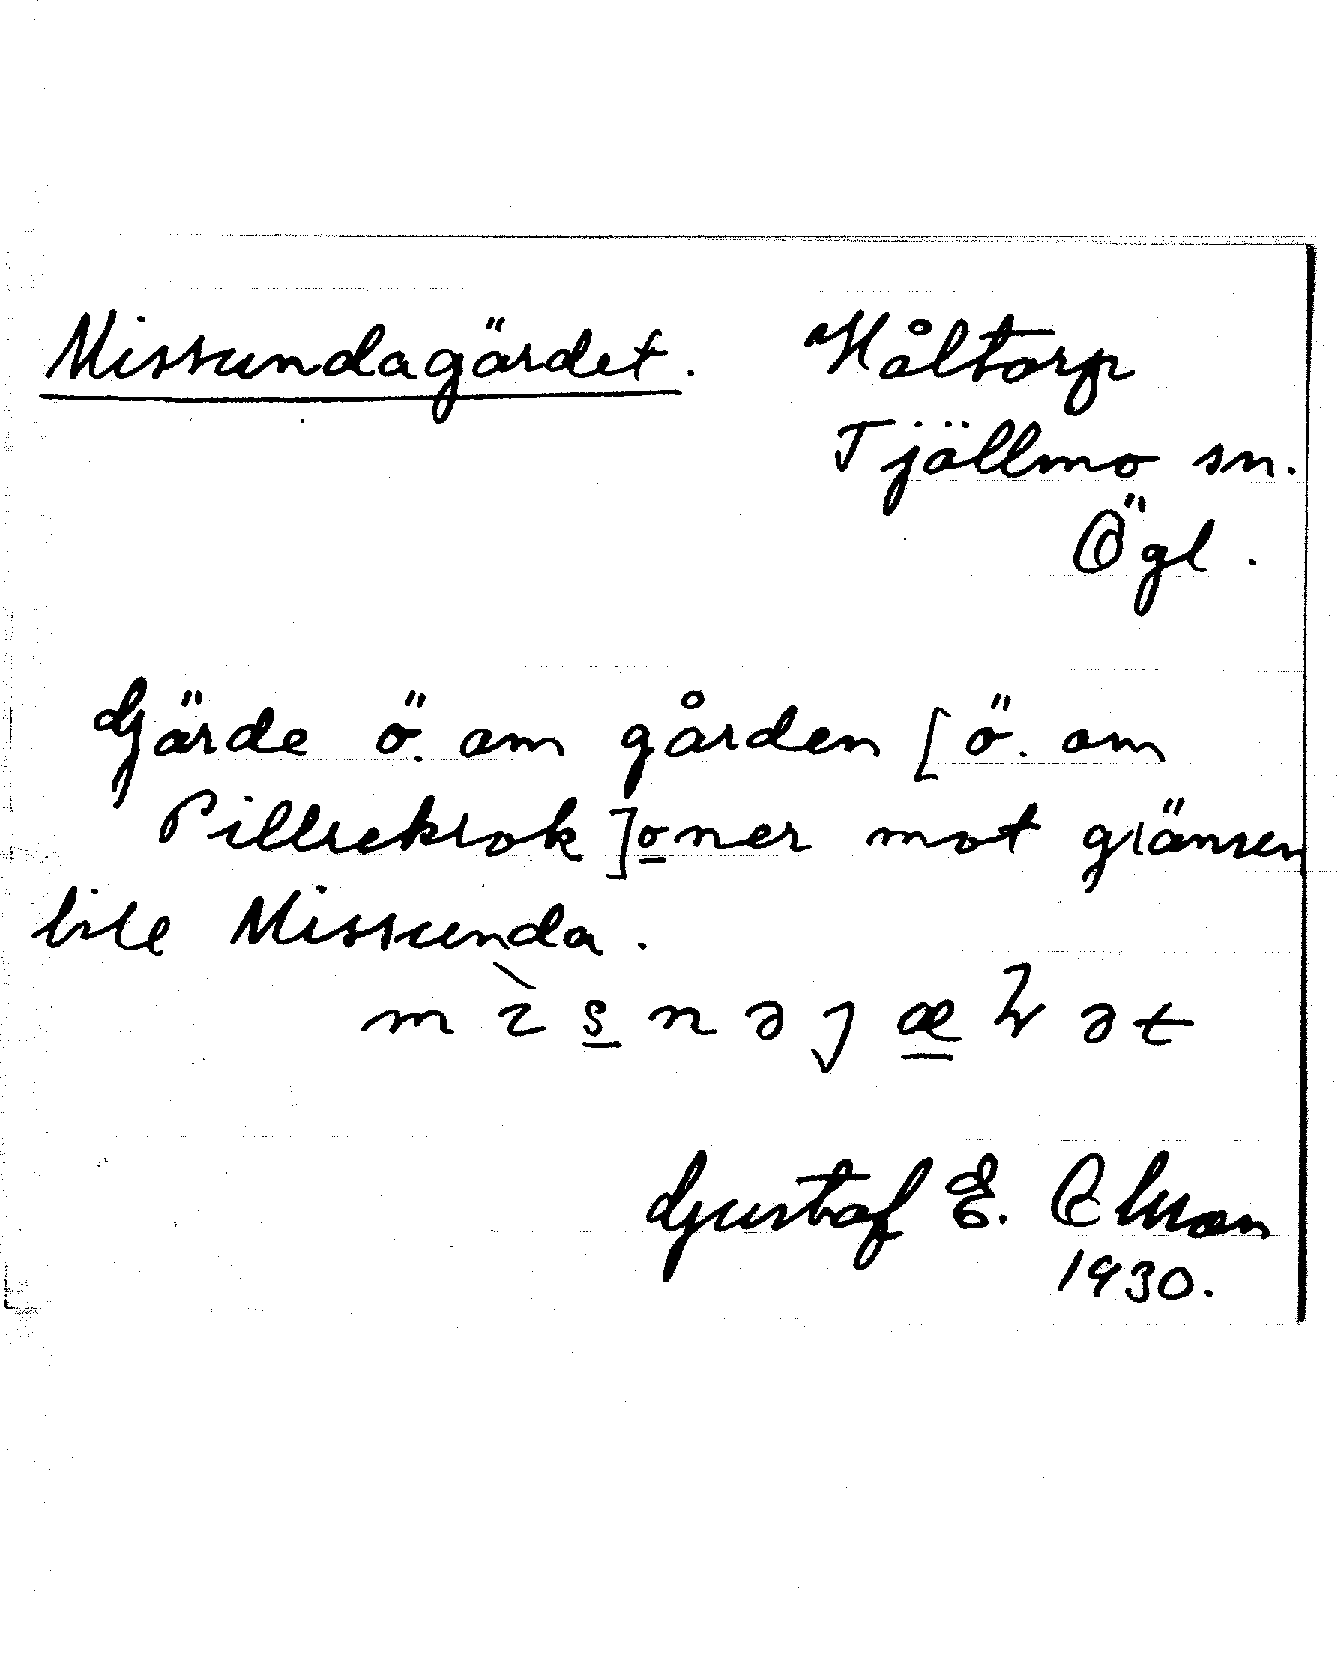 Missundagärdet. Håltorp
Tjällmo sn.
Ögl.
Gärde ö. om gården [ö. om
Pillsekrok] o ner mot gränsen
till Missunda.
Gustaf E. Olsson
1930.